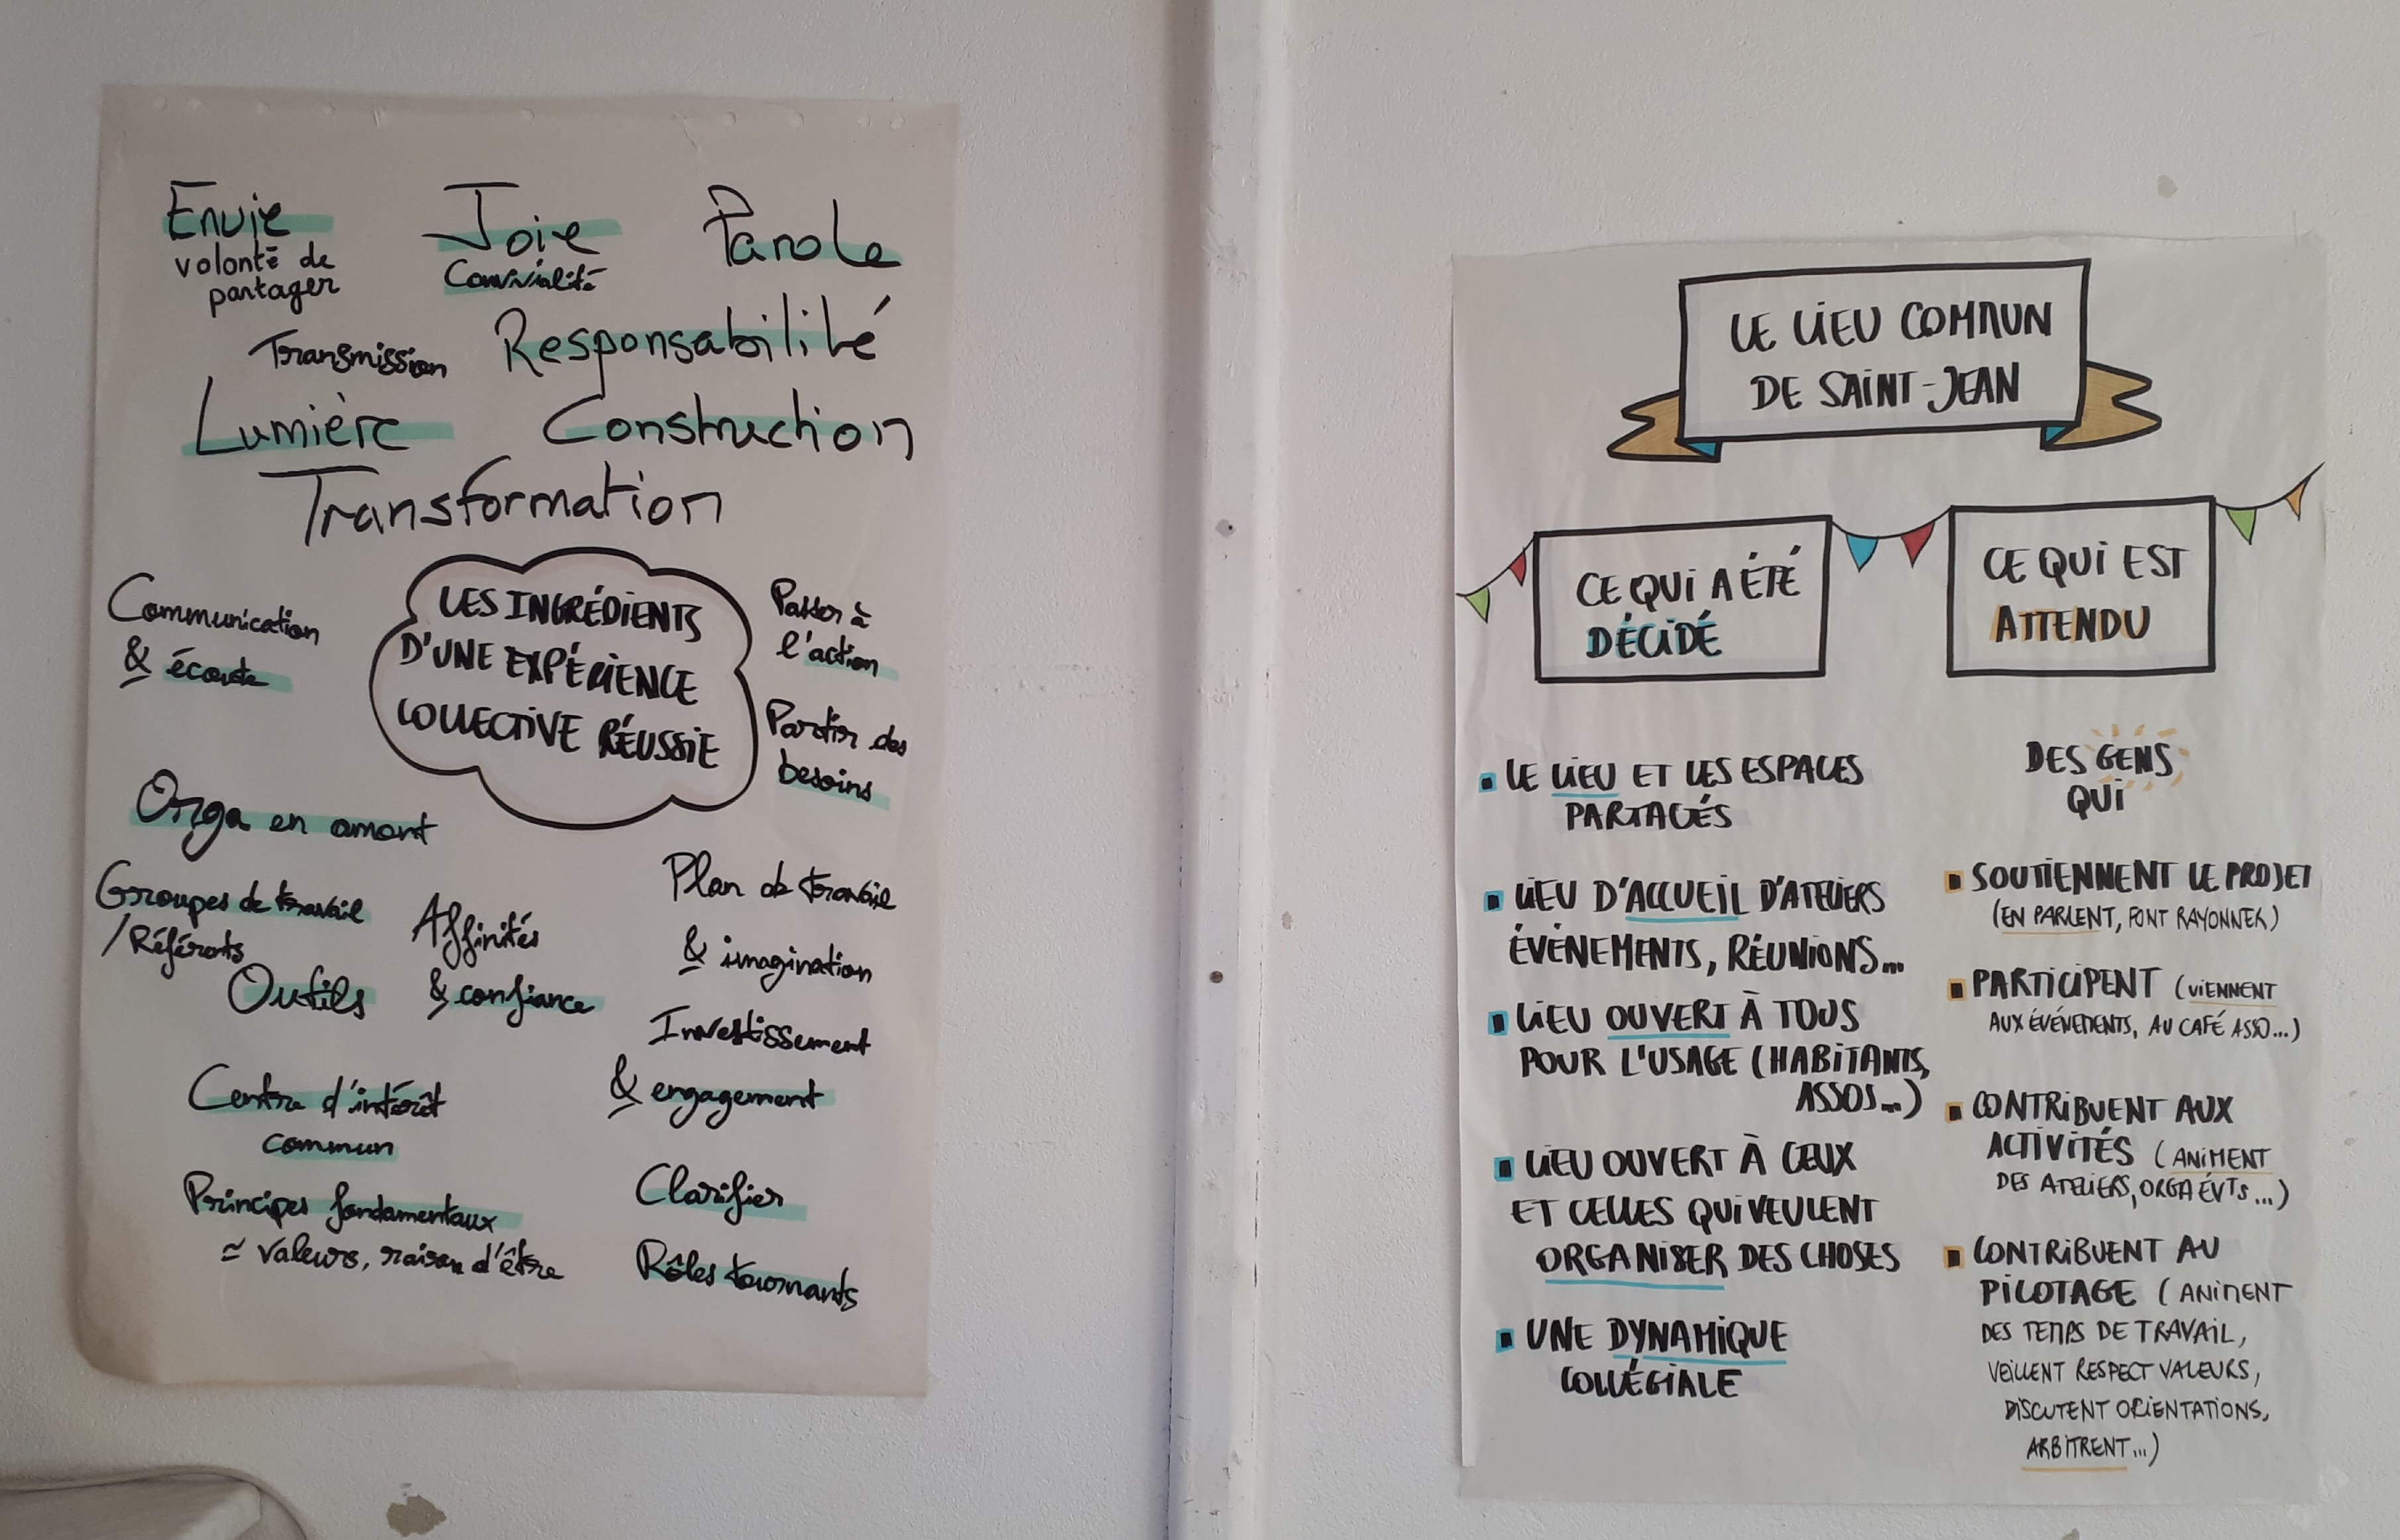 Envie
volonté de
partager
Joie
Convivialité
Parole
Transmission
Responsabilité
Lumière
Construction
Transformation
LES INGRÉDIENTS
D'UNE EXPÉRIENCE
COLLECTIVE RÉUSSIE
Communication
& écoute
Passer à
l'action
Partir des
besoins
Orga en amont
Groupes de travail
/Référents
Outils
Affinités
& confiance
Plan de travail
& imagination
Investissement
& engagement
Centre d'intérêt
commun
Principes fondamentaux
≃ valeurs, raison d'être
Clarifier
Rôles tournants
LE LIEU COMMUN
DE SAINT-JEAN
CE QUI A ÉTÉ
DÉCIDÉ
▪ LE LIEU ET LES ESPACES
PARTAGÉS
▪ LIEU D'ACCUEIL D'ATELIERS
ÉVÉNEMENTS, RÉUNIONS...
▪ LIEU OUVERT À TOUS
POUR L'USAGE (HABITANTS,
ASSOS...)
▪ LIEU OUVERT À CEUX
ET CELLES QUI VEULENT
ORGANISER DES CHOSES
▪ UNE DYNAMIQUE
COLLÉGIALE
CE QUI EST
ATTENDU
DES GENS
QUI
▪ SOUTIENNENT LE PROJET
(EN PARLENT, FONT RAYONNER)
▪ PARTICIPENT (VIENNENT
AUX ÉVÉNEMENTS, AU CAFÉ ASSO...)
▪ CONTRIBUENT AUX
ACTIVITÉS (ANIMENT
DES ATELIERS, ORGA ÉVTS...)
▪ CONTRIBUENT AU
PILOTAGE (ANIMENT
DES TEMPS DE TRAVAIL,
VEILLENT RESPECT VALEURS,
DISCUTENT ORIENTATIONS,
ARBITRENT...)